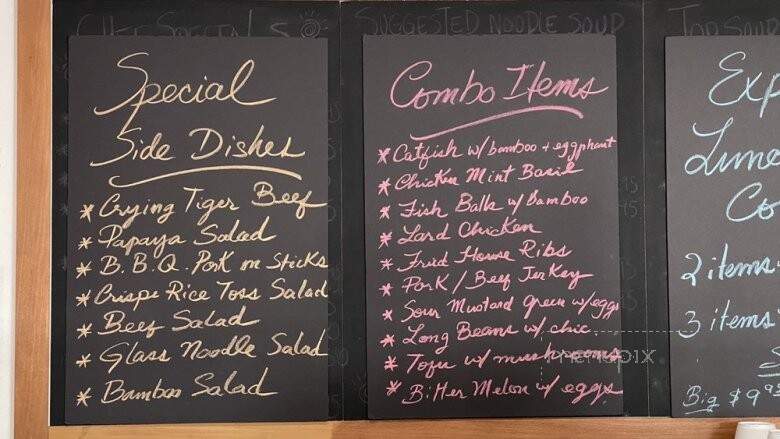 Chef Specials
SUGGESTED NOODLE SOUP
TOP SOUP
Special
Side Dishes
* Crying Tiger Beef
* Papaya Salad
* B.B.Q. Pork on Sticks
* Crispi Rice Toss Salad
* Beef Salad
* Glass Noodle Salad
* Bamboo Salad
Combo Items
* Catfish w/bamboo + eggphant
* Chicken Mint Basil
* Fish Balls w/ Bamboo
* Lard Chicken
* Fried House Ribs
* Pork / Beef Jerkey
* Sour Mustard green w/eggs
* Long Beans w/ chic
* Tofu w/ mushrooms
* Bitter Melon w/ eggs
Exp
Lunc
Co
2 items
3 items
Big $9.9
menupix